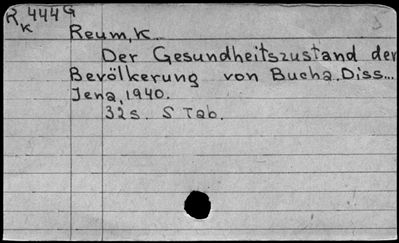 R 444G
K
Reum, K...
Der Gesundheitszustand der
Bevölkerung von Bucha. Diss...
Jena, 1940.
32s. S Tab.